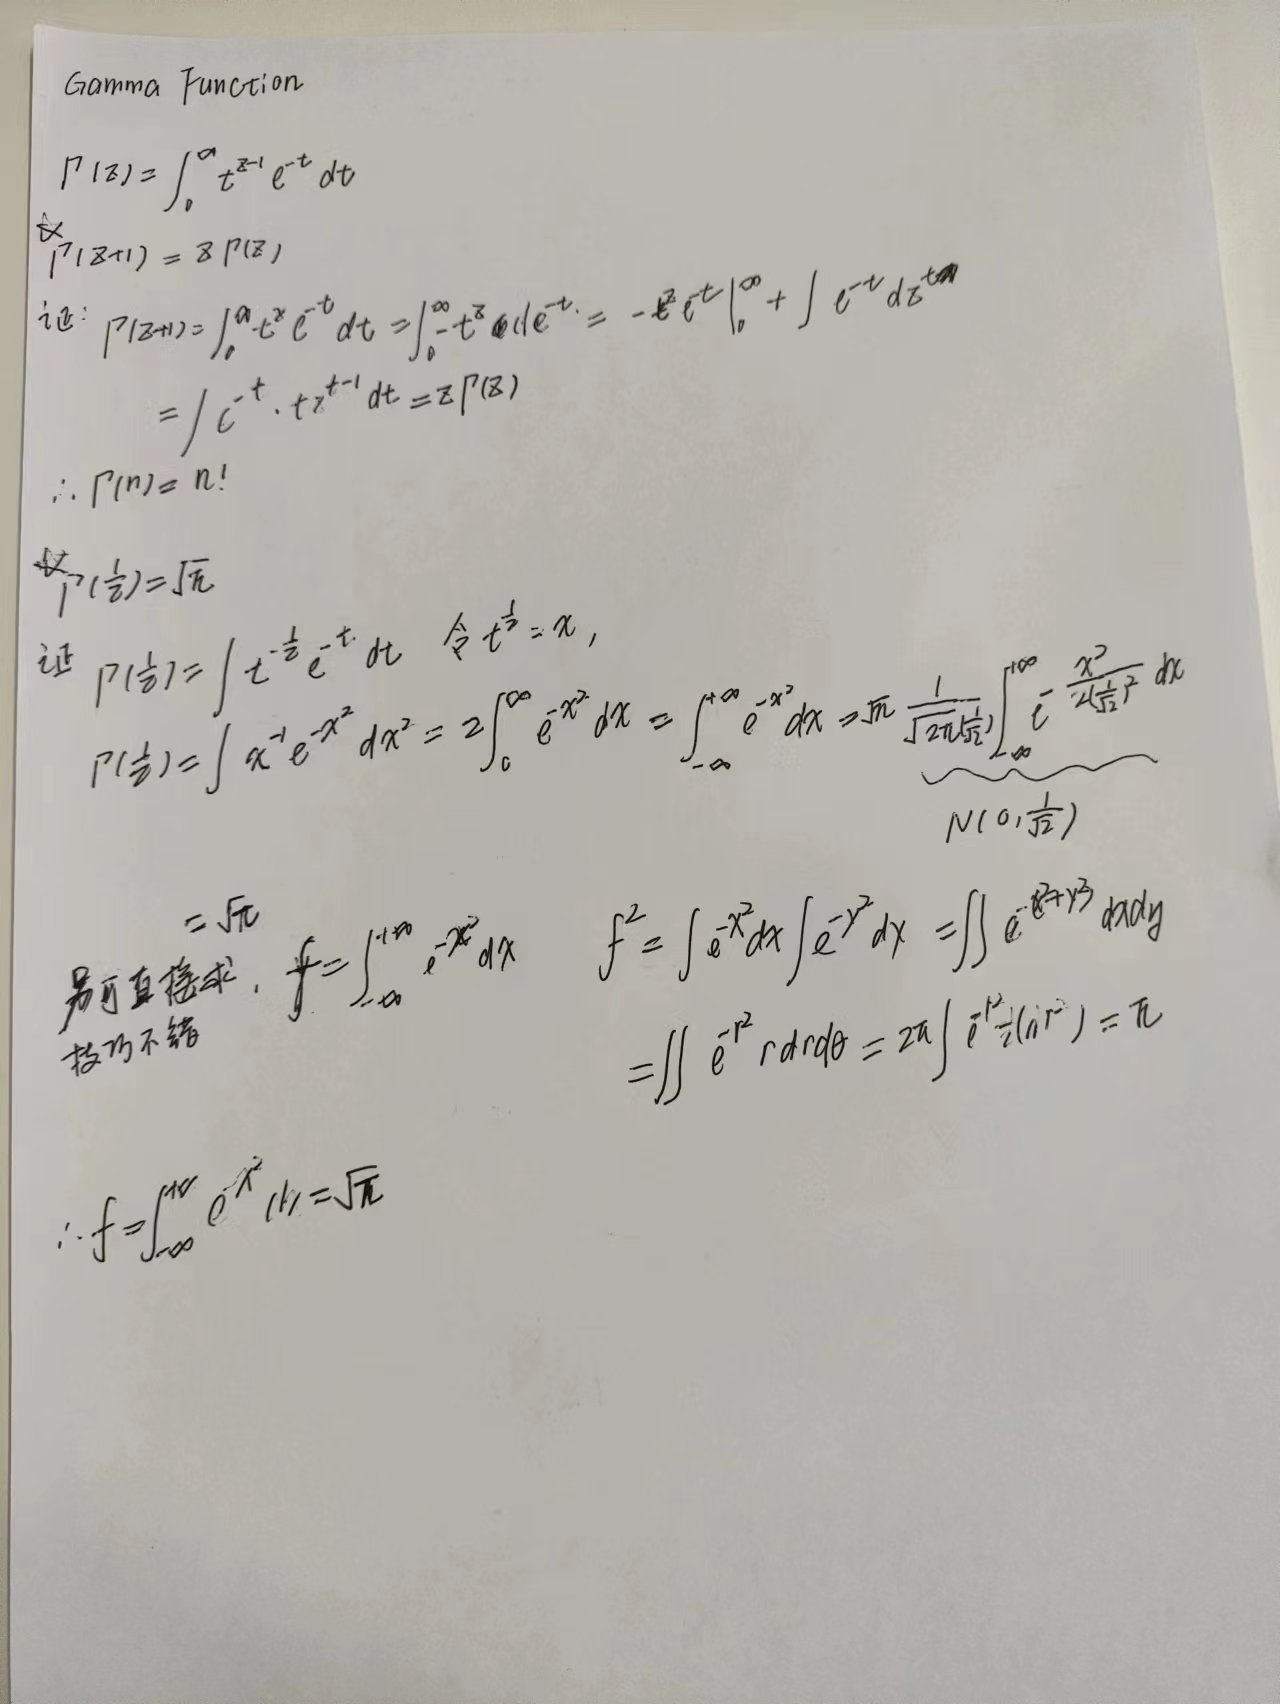 Gamma Function
Γ(z) = ∫₀^∞ t^{z-1} e^{-t} dt
☆ Γ(z+1) = z Γ(z)
证: Γ(z+1) = ∫₀^∞ t^z e^{-t} dt = ∫₀^∞ -t^z de^{-t} = -t^z e^{-t} |₀^∞ + ∫ e^{-t} dz^t
= ∫ e^{-t} · t z^{t-1} dt = z Γ(z)
∴ Γ(n) = n!
☆ Γ(1/2) = √π
证 Γ(1/2) = ∫ t^{-1/2} e^{-t} dt 令 t^{1/2} = x,
Γ(1/2) = ∫ x^{-1} e^{-x²} dx² = 2∫₀^∞ e^{-x²} dx = ∫_{-∞}^{+∞} e^{-x²} dx = √π 1/(√2π(1/√2)) ∫_{-∞}^{+∞} e^{-x²/(2(1/√2)²)} dx
N(0, 1/√2)
= √π
另可直接求, f = ∫_{-∞}^{+∞} e^{-x²} dx f² = ∫ e^{-x²} dx ∫ e^{-y²} dx = ∬ e^{-(x²+y²)} dxdy
技巧不错
= ∬ e^{-r²} r dr dθ = 2π ∫ e^{-r²} 1/2 ( r²) = π
∴ f = ∫_{-∞}^{+∞} e^{-x²} dx = √π